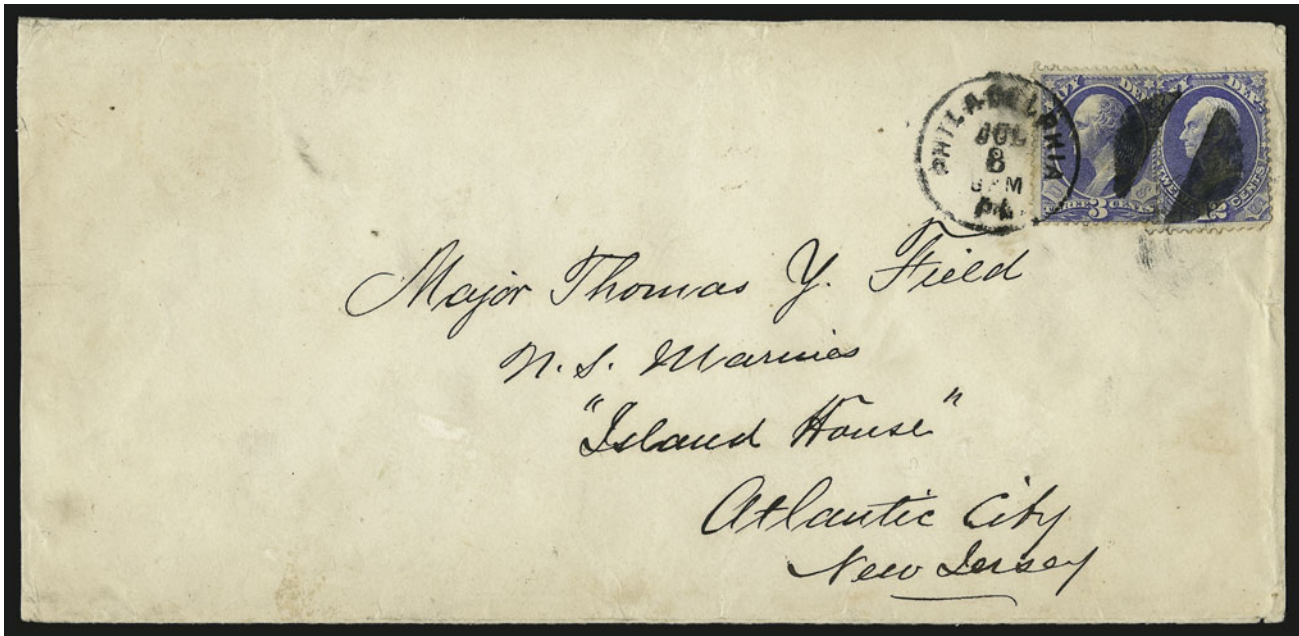 PHILADELPHIA
JUL
8
PM
PA.
NAVY DEPT.
THREE 3 CENTS
DEPT.
12 CENTS
Major Thomas Y. Field
U.S. Marines
"Island House"
Atlantic City
New Jersey